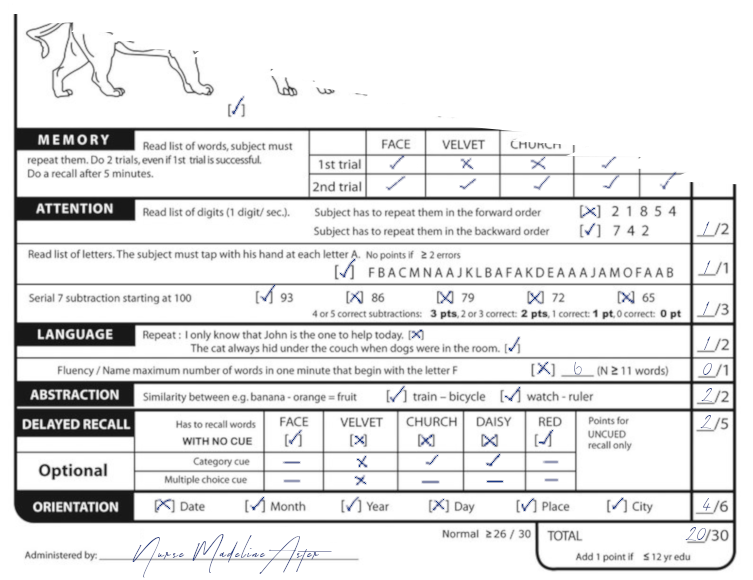 [✓]
MEMORY Read list of words, subject must repeat them. Do 2 trials, even if 1st trial is successful. Do a recall after 5 minutes.
FACE VELVET CHURCH
1st trial ✓ ✗ ✗ ✓
2nd trial ✓ ✓ ✓ ✓ ✓
ATTENTION Read list of digits (1 digit/ sec.). Subject has to repeat them in the forward order [✗] 2 1 8 5 4
Subject has to repeat them in the backward order [✓] 7 4 2 1/2
Read list of letters. The subject must tap with his hand at each letter A. No points if ≥ 2 errors
[✓] F B A C M N A A J K L B A F A K D E A A A J A M O F A A B 1/1
Serial 7 subtraction starting at 100 [✓] 93 [✗] 86 [✗] 79 [✗] 72 [✗] 65
4 or 5 correct subtractions: 3 pts, 2 or 3 correct: 2 pts, 1 correct: 1 pt, 0 correct: 0 pt 1/3
LANGUAGE Repeat : I only know that John is the one to help today. [✗]
The cat always hid under the couch when dogs were in the room. [✓] 1/2
Fluency / Name maximum number of words in one minute that begin with the letter F [✗] 6 (N ≥ 11 words) 0/1
ABSTRACTION Similarity between e.g. banana - orange = fruit [✓] train – bicycle [✓] watch - ruler 2/2
DELAYED RECALL Has to recall words WITH NO CUE FACE [✓] VELVET [✗] CHURCH [✗] DAISY [✗] RED [✓] Points for UNCUED recall only 2/5
Optional Category cue — ✗ ✓ ✓ —
Multiple choice cue — ✗ — — —
ORIENTATION [✗] Date [✓] Month [✓] Year [✗] Day [✓] Place [✓] City 4/6
Normal ≥ 26 / 30 TOTAL 20/30
Administered by: Nurse Madeline Aster Add 1 point if ≤ 12 yr edu